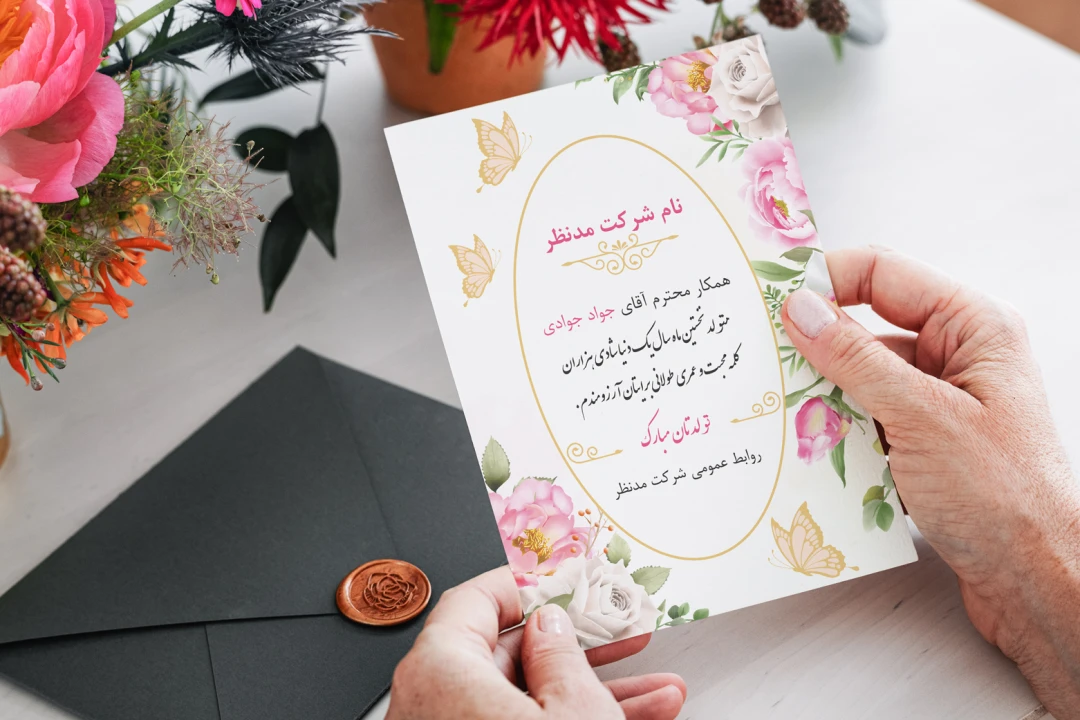 نام شرکت مدنظر
همکار محترم آقای جواد جوادی
متولد نخستین ماه سال یک دنیا شادی هزاران
کلمه محبت و عمری طولانی برایتان آرزومندم.
تولدتان مبارک
روابط عمومی شرکت مدنظر